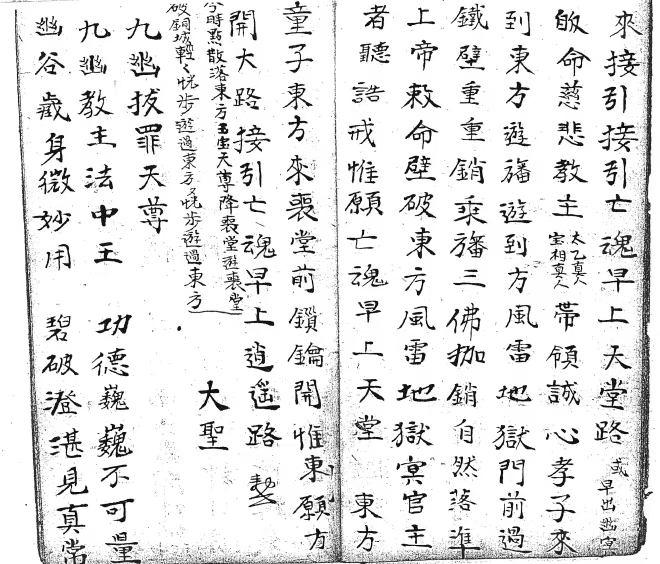 來接引接引亡魂早上天堂路 或早出幽冥
皈命慈悲教主 太乙真人 宝相真人 帶領誠心孝子來
到東方遊旛遊到方風雷地獄門前過
鐵壁重重銷乘旛三佛枷銷自然落準
上帝敕命壁破東方風雷地獄冥官主
者聽誥戒惟願亡魂早上天堂 東方
童子東方來喪堂前鎖鑰開惟東願方
開大路接引亡魂早上逍遥路
今時點散落東方玉宝天尊降喪堂遊喪堂
破銅城轉々恍步遊過東方又恍步遊過東方
大聖
九幽拔罪天尊
九幽教主法中王 功德巍巍不可量
幽谷藏身微妙用 碧破澄湛見真常